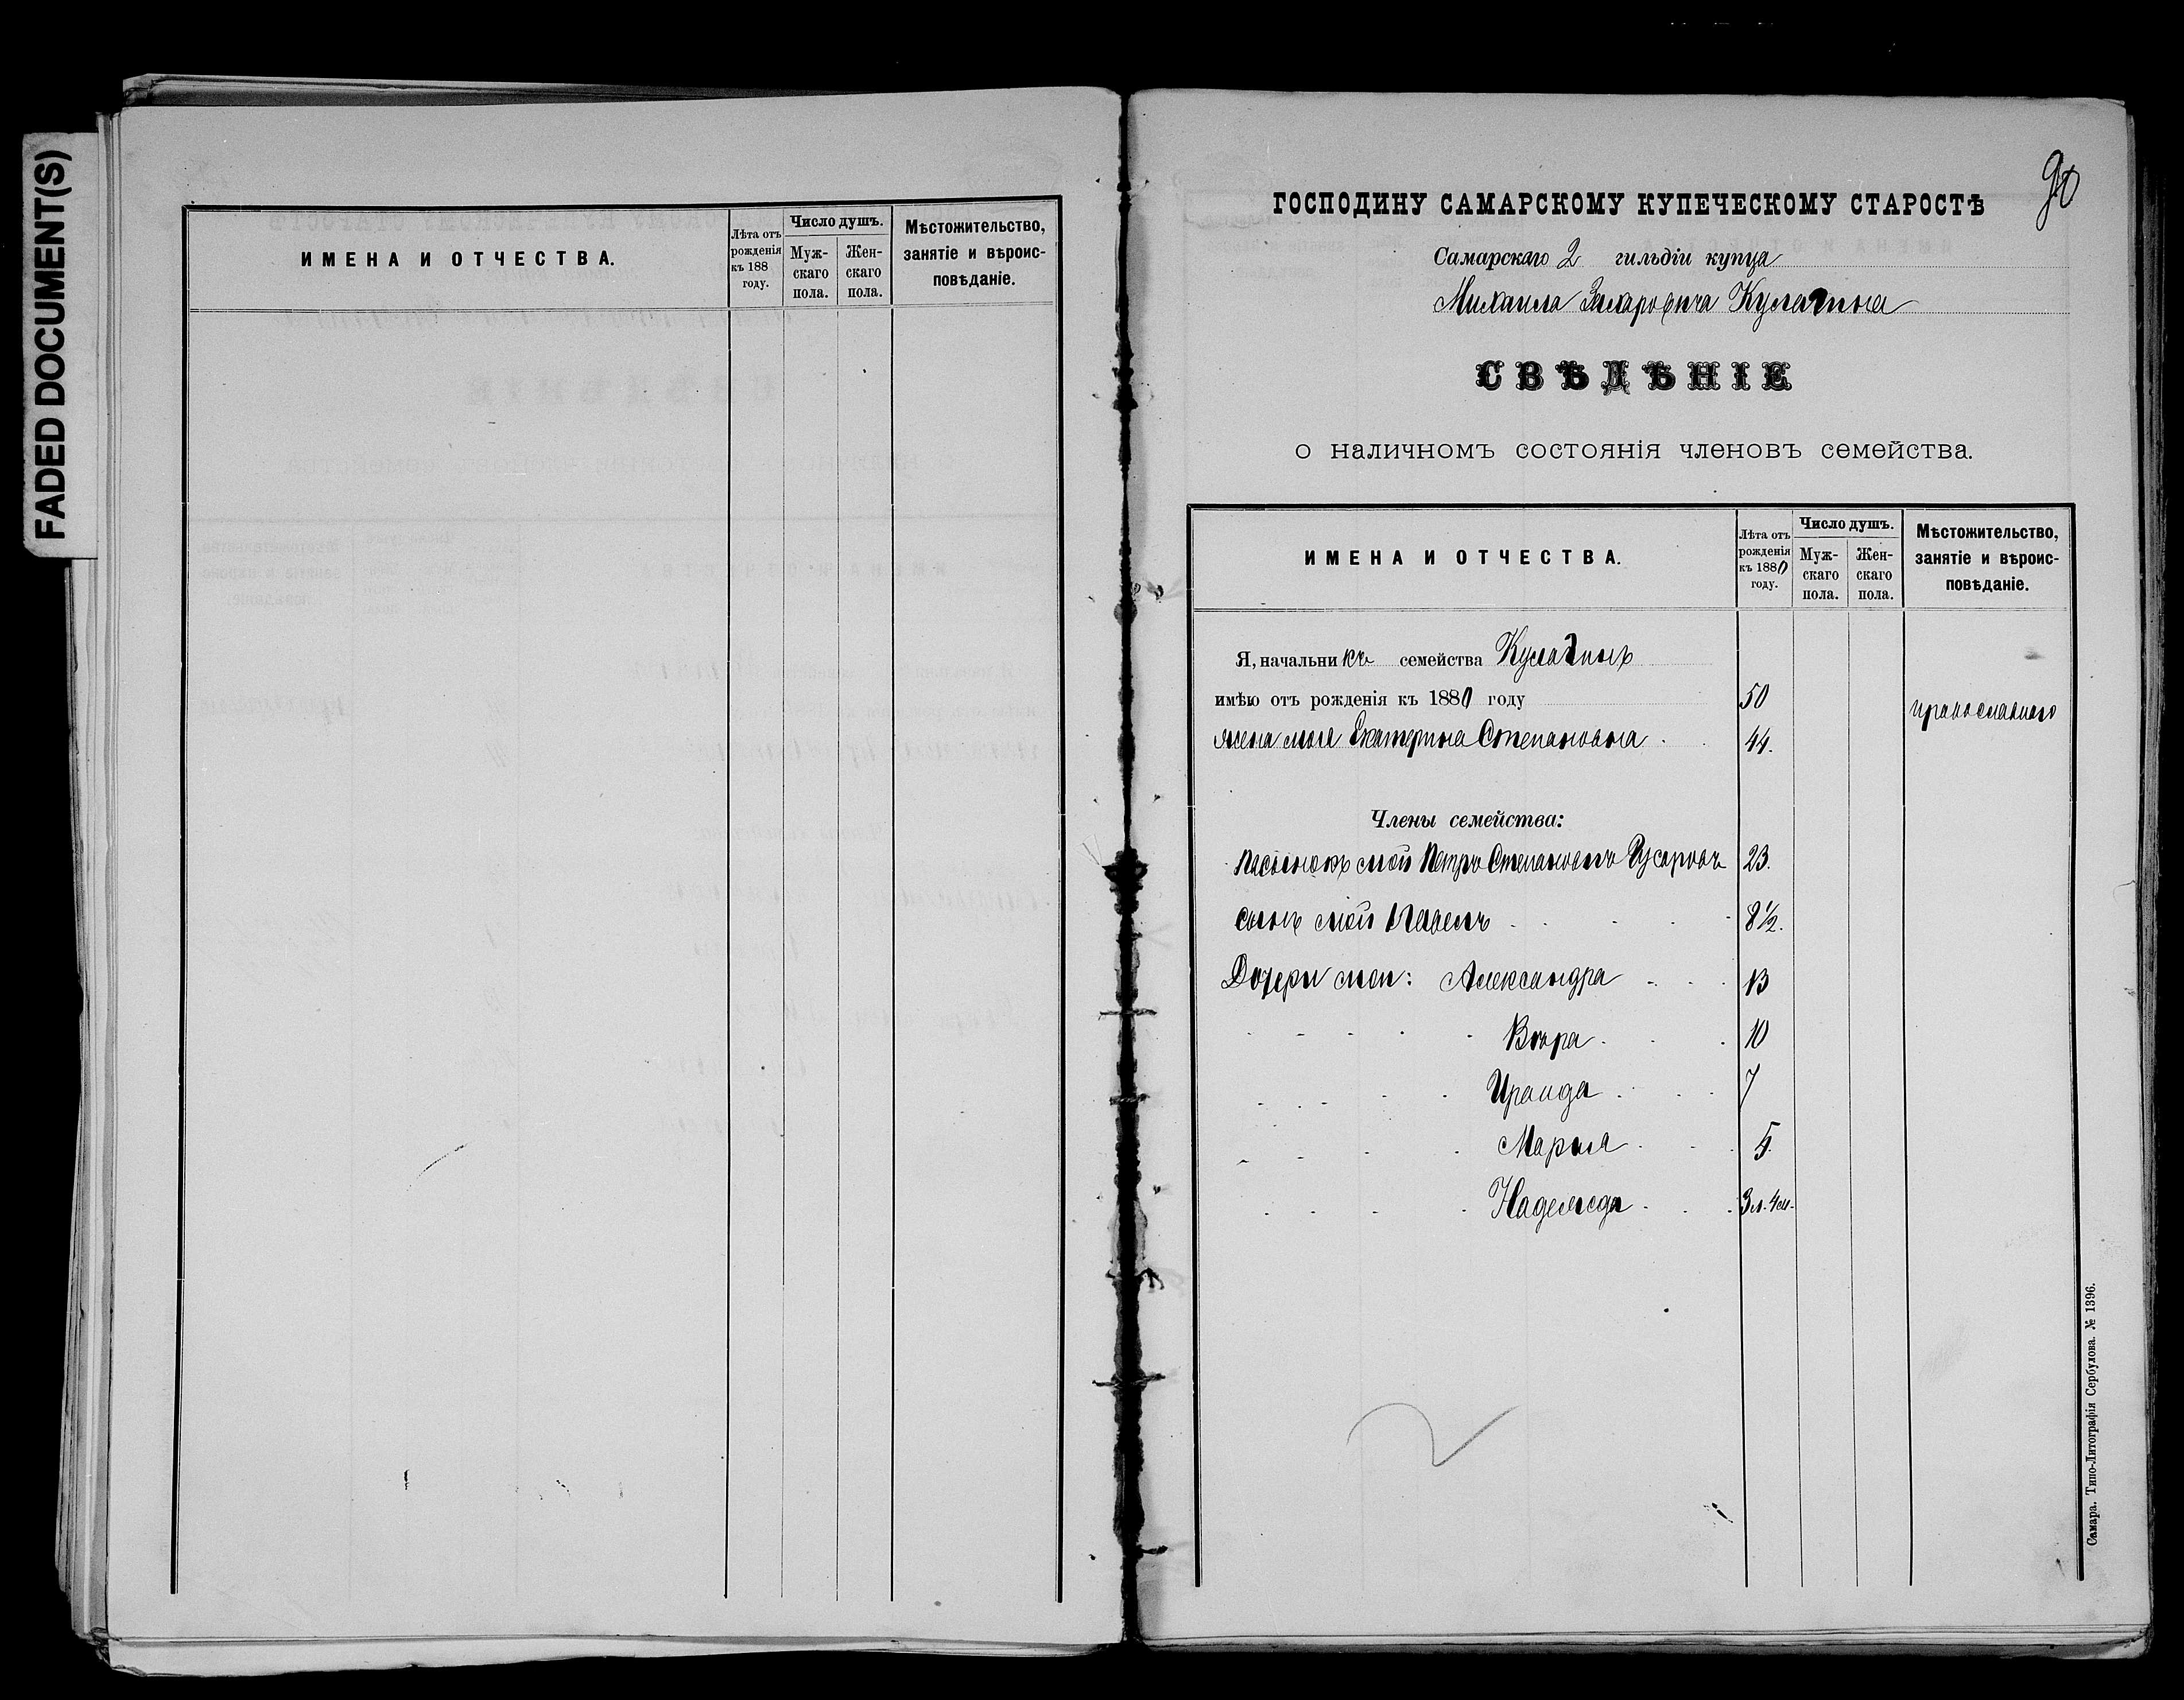 FADED DOCUMENT(S)
ИМЕНА И ОТЧЕСТВА.
Лѣта отъ рожденія къ 188 году.
Число душъ.
Муж-скаго пола.
Жен-скаго пола.
Мѣстожительство, занятіе и вѣроис-повѣданіе.
90
ГОСПОДИНУ САМАРСКОМУ КУПЕЧЕСКОМУ СТАРОСТѢ
Самарскаго 2 гильдіи купца
Михаила Захаровича Кулагина
СВѢДѢНІЕ
о наличномъ состоянія членовъ семейства.
ИМЕНА И ОТЧЕСТВА.
Лѣта отъ рожденія къ 1880 году.
Число душъ.
Муж-скаго пола.
Жен-скаго пола.
Мѣстожительство, занятіе и вѣроис-повѣданіе.
Я, начальникъ семейства Кулагинъ
имѣю отъ рожденія къ 1880 году 50 православнаго
жена моя Екатерина Степановна 44.
Члены семейства:
пасынокъ мой Петръ Степановичъ 23.
сынъ мой Павелъ 8½.
Дочери мои: Александра 13
Вѣра 10
Ираида 7
Марья 5.
Надежда 3 л. 4 м.
Самара. Типо-Литографія Сербулова. № 1396.